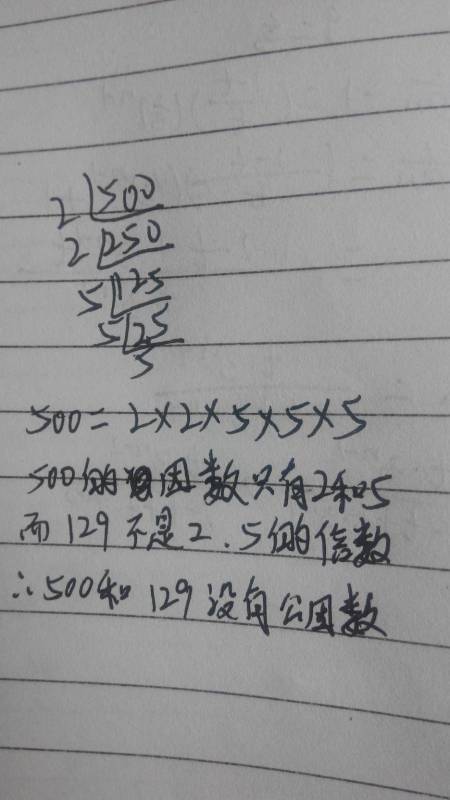 2 500
2 250
5 125
5 25
5
500=2×2×5×5×5
500的因数只有2和5
而129不是2.5的倍数
∴500和129没有公因数